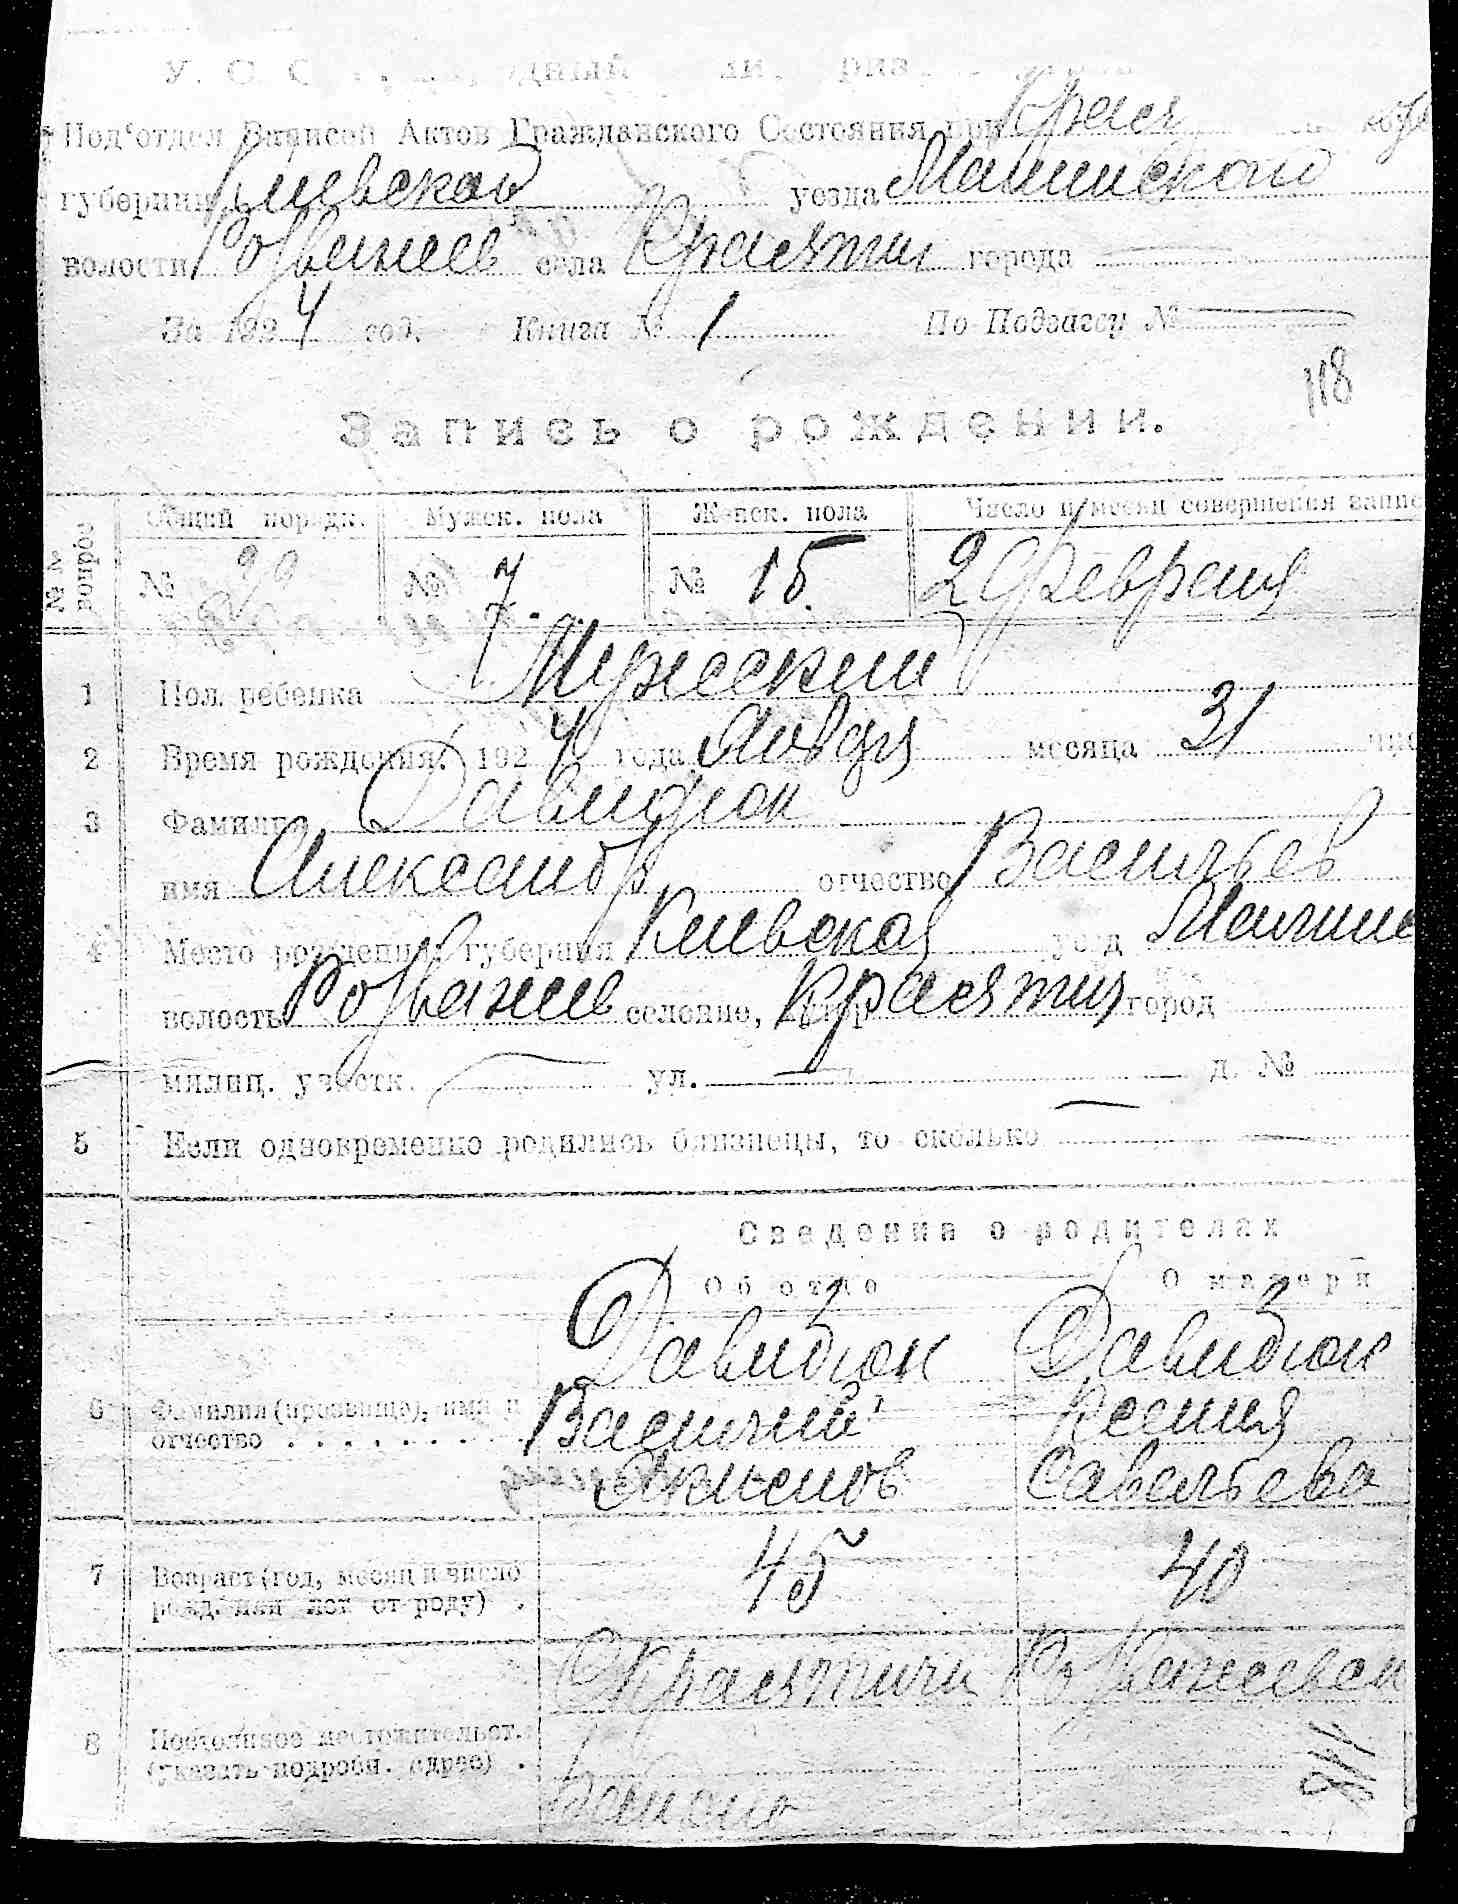 У. С. С.
Под‘отдел Записей Актов Гражданского Состояния при Крася
губернии Киевской уезда Малинского
волости Розважев села Красятич города
За 1924 год. Книга № 1 По Подзагсу №
118
Запись о рождении.
№№ вопроса Общий порядк. Мужск. пола Женск. пола Число и месяц совершения запис
№ 22 № 7 № 15 2 февраля
1 Пол ребенка Мужеский
2 Время рождения: 1924 года Января месяца 31 чис
3 Фамилия Давидюк
имя Александр отчество Васильев
4 Место рождения: губерния Киевская уезд Малинс
волость Розважев селение, Красятич город
милиц. участк. ул. д. №
5 Если одновременно родились близнецы, то сколько
Сведения о родителях
Об отце О матери
Давидюк Давидюк
6 Фамилия (прозвище), имя и отчество . . . . . . . Василий Ксения
Савельева
7 Возраст (год, месяц и число рождения или от роду) . 45 40
Красятичи Розважевск
8 Постоянное местожительст. (указать подробн. адрес) .
118